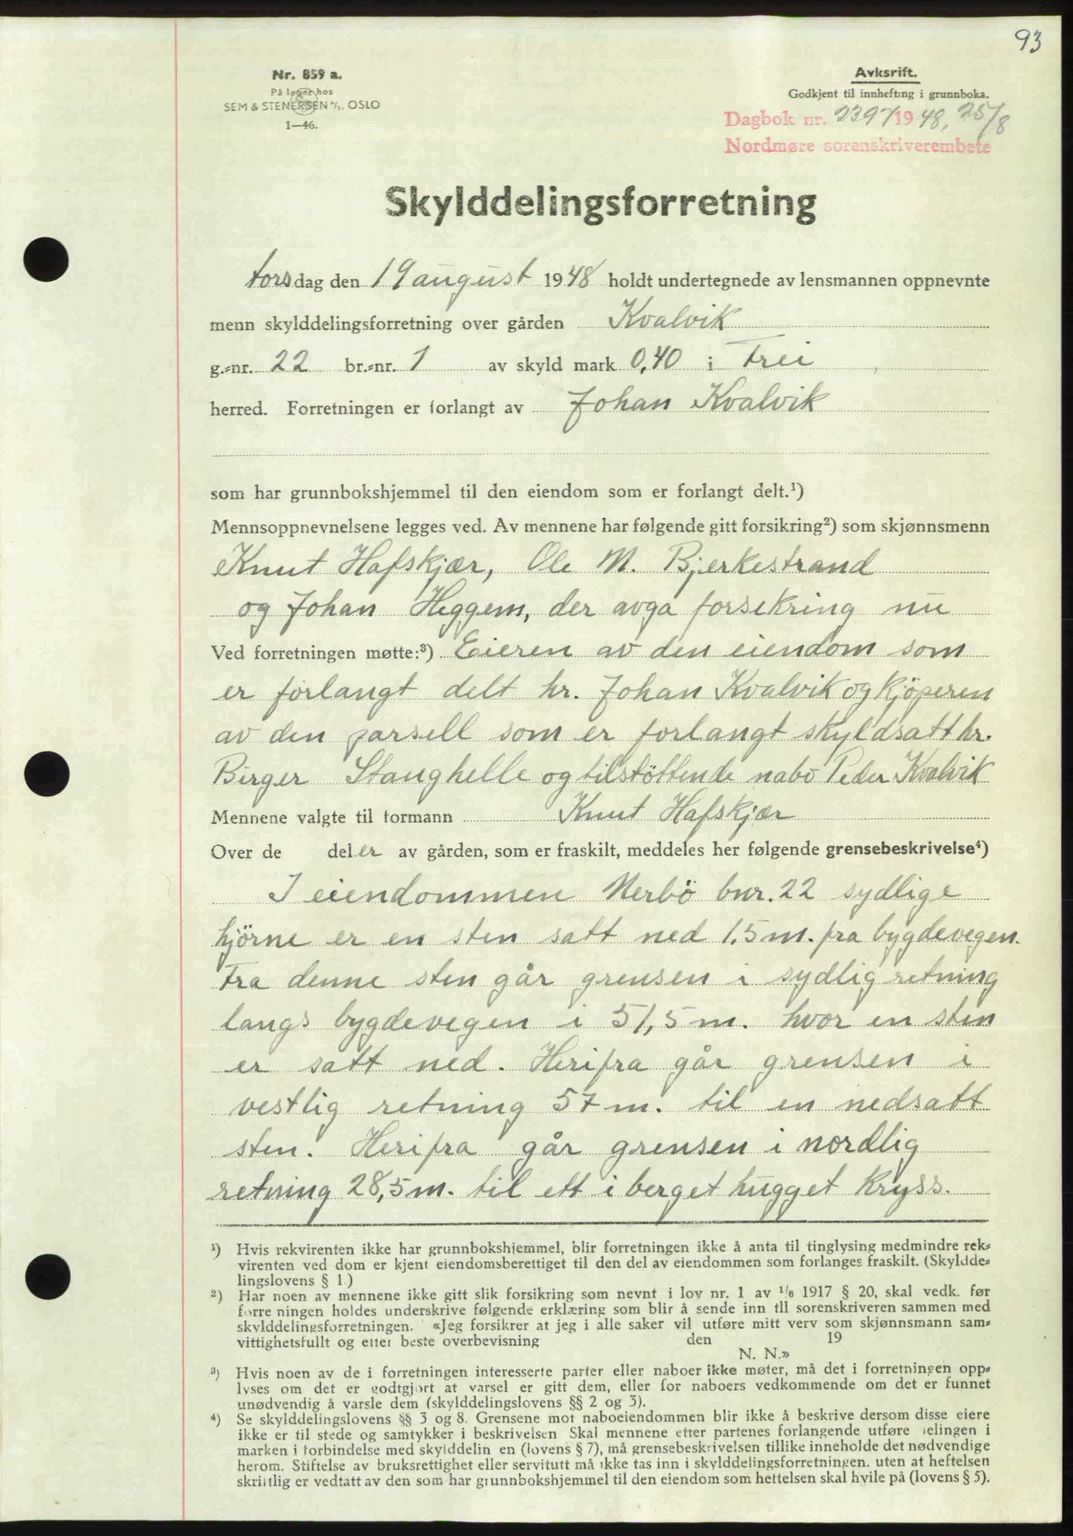 93
Nr. 859 a.
På lager hos
SEM & STENERSEN A/S. OSLO
1—46.
Avksrift.
Godkjent til innhefting i grunnboka.
Dagbok nr. 2397/1948, 25/8
Nordmøre sorenskriverembete
Skylddelingsforretning
torsdag den 19 august 1948 holdt undertegnede av lensmannen oppnevnte
menn skylddelingsforretning over gården Kvalvik
g.-nr. 22 br.-nr. 1 av skyld mark 0,40 i Frei
herred. Forretningen er forlangt av Johan Kvalvik
som har grunnbokshjemmel til den eiendom som er forlangt delt.¹)
Mennsoppnevnelsene legges ved. Av mennene har følgende gitt forsikring²) som skjønnsmenn
Knut Hafskjær, Ole M. Bjerkestrand
og Johan Heggem, der avga forsekring nu
Ved forretningen møtte:³) Eieren av den eiendom som
er forlangt delt hr. Johan Kvalvik og kjöperen
av den parsell som er forlangt skyldsatt hr.
Birger Stanghelle og tilstöttende nabo Peder Kvalvik
Mennene valgte til formann Knut Hafskjær
Over de deler av gården, som er fraskilt, meddeles her følgende grensebeskrivelse⁴)
I eiendommen Nerbö bnr. 22 sydlige
hjörne er en sten satt ned 1.5 m. fra bygdevegen.
Fra denne sten går grensen i sydlig retning
langs bygdevegen i 51,5 m. hvor en sten
er satt ned. Herifra går grensen i
vestlig retning 57 m. til en nedsatt
sten. Herifra går grensen i nordlig
retning 28,5 m. til ett i berget hugget Kryss.
¹) Hvis rekvirenten ikke har grunnbokshjemmel, blir forretningen ikke å anta til tinglysing medmindre rek-
virenten ved dom er kjent eiendomsberettiget til den del av eiendommen som forlanges fraskilt. (Skyldde-
lingslovens § 1.)
²) Har noen av mennene ikke gitt slik forsikring som nevnt i lov nr. 1 av 1/6 1917 § 20, skal vedk. før
forretningen holdes underskrive følgende erklæring som blir å sende inn til sorenskriveren sammen med
skylddelingsforretningen. «Jeg forsikrer at jeg i alle saker vil utføre mitt verv som skjønnsmann sam-
vittighetsfullt og etter beste overbevisning den 19
N. N.»
³) Hvis noen av de i forretningen interesserte parter eller naboer ikke møter, må det i forretningen opp-
lyses om det er godtgjort at varsel er gitt dem, eller for naboers vedkommende om det er funnet
unødvendig å varsle dem (skylddelingslovens §§ 2 og 3).
⁴) Se skylddelingslovens §§ 3 og 8. Grensene mot naboeiendommen blir ikke å beskrive dersom disse eiere
ikke er til stede og samtykker i beskrivelsen Skal mennene etter partenes forlangende utføre delingen i
marken i forbindelse med skylddelingen (lovens § 7), må grensebeskrivelsen tillike inneholde det nødvendige
herom. Stiftelse av bruksrettighet eller servitutt må ikke tas inn i skylddelingsforretningen. uten at heftelsen
skriftlig er vedtatt av den som har grunnbokshjemmel til den eiendom som heftelsen skal hvile på (lovens § 5).